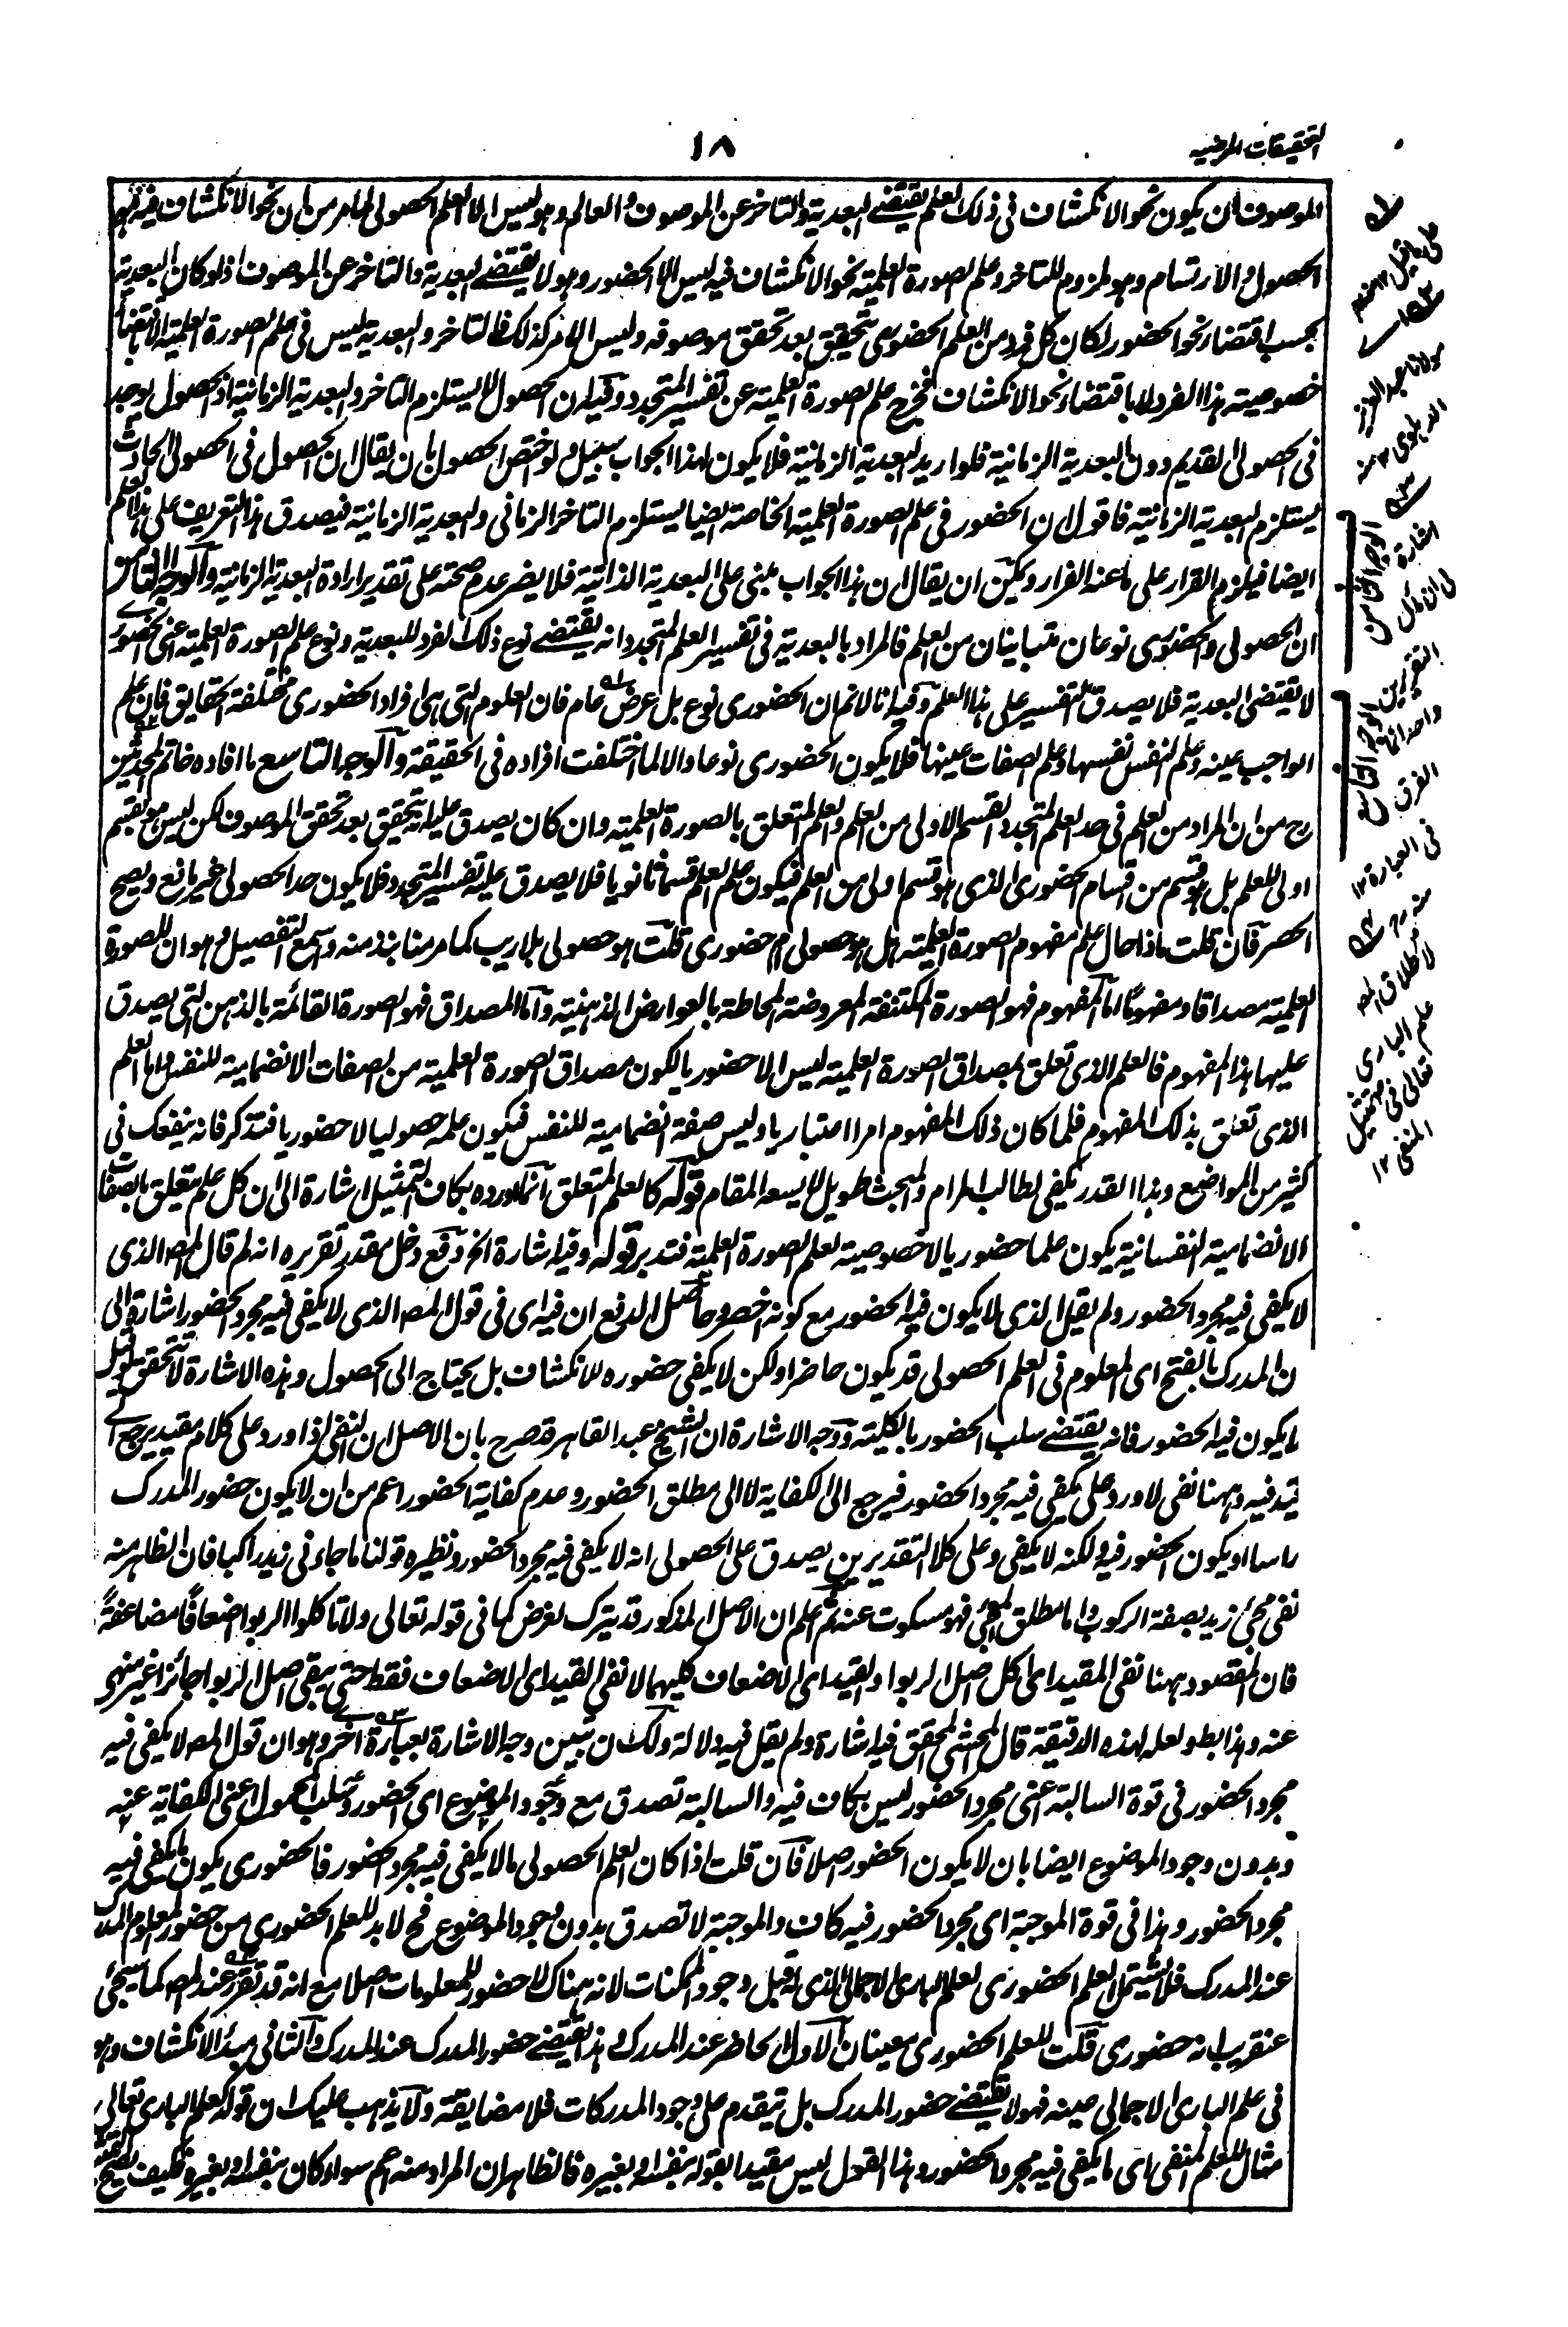 التحقيقات المرضيه
١٨
الموصوف ان يكون نحو الانكشاف فى ذلك العلم يقتضے البعدية والتاخر عن الموصوف والعالم وهو ليس الا العلم الحصولى لما مر من ان نحو الانكشاف فيه هو
الحصول والارتسام وهو ملزوم للتاخر وعلم الصورة العلمية نحو الانكشاف فيه ليس الا الحضور وهو لا يقتضے البعدية والتاخر عن الموصوف اذ لو كان البعدية
بحسب اقتضاء نحو الحضور لكان كل فرد من العلم الحضورى يتحقق بعد تحقق موصوفه وليس الامر كذلك فالتاخر والبعدية ليس فى علم الصورة العلمية الا باقتضاء
خصوصية هذا الفرد لا باقتضاء نحو الانكشاف فخرج علم الصورة العلمية عن تفسير المتجدد وفيه ان الحصول لا يستلزم التاخر والبعدية الزمانية اذ الحصول يوجد
فى الحصولى القديم دون البعدية الزمانية فلو اريد البعدية الزمانية فلا يكون لهذا الجواب سبيل ولو اختص الحصول بان يقال ان الحصول فى الحصولى الحادث
يستلزم البعدية الزمانية فاقول ان الحضور فى علم الصورة العلمية الخاصة ايضا يستلزم التاخر الزمانى والبعدية الزمانية فيصدق هذا التعريف على هذا العلم
ايضا فيلزم القرار على ما عنه الفرار ويمكن ان يقال ان هذا الجواب مبنى على البعدية الذاتية فلا يضر عدم صحته على تقدير ارادة البعدية الزمانية والوجه الثامن
ان الحصولى والحضورى نوعان متباينان من العلم فالمراد بالبعدية فى تفسير العلم المتجدد انه يقتضے نوع ذلك الفرد للبعدية ونوع علم الصورة العلمية اعنى الحضورى
لا يقتضى البعدية فلا يصدق التفسير على هذا العلم وفيه انا لا نم ان الحضورى نوع بل عرض عام فان العلوم التى هى افراد الحضورى مختلفة الحقايق فان علم
الواجب عينه وعلم النفس نفسها وعلم الصفات عينها فلا يكون الحضورى نوعا والا لما اختلفت افراده فى الحقيقة والوجه التاسع ما افاده خاتم المحدثين
رح من ان المراد من العلم فى حد العلم المتجدد القسم الاولى من العلم والعلم المتعلق بالصورة العلمية وان كان يصدق عليه انه يتحقق بعد تحقق الموصوف لكن ليس هو بقسم
اولى للعلم بل هو قسم من اقسام الحضورى الذى هو قسم اولى من العلم فيكون علم العلم قسما ثانويا فلا يصدق عليه تفسير المتجدد فلا يكون حد الحصولى غير مانع ويصح
الحصر فان قلت ماذا حال علم مفهوم الصورة العلمية هل هو حصولى ام حضورى قلت هو حصولى بلا ريب كما مر منا نبذ منه وسمع التفصيل وهو ان للصورة
العلمية مصداقا ومفهومًا اما المفهوم فهو الصورة المكتنفة المعروضة المحاطة بالعوارض الذهنية واما المصداق فهو الصورة القائمة بالذهن التى يصدق
عليها هذا المفهوم فالعلم الذى تعلق بمصداق الصورة العلمية ليس الا حضوريا لكون مصداق الصورة العلمية من الصفات الانضمامية للنفس واما العلم
الذى تعلق بذلك المفهوم فلما كان ذلك المفهوم امرا اعتباريا وليس صفة انضمامية للنفس فيكون علمه حصوليا لا حضوريا فتذكر فانه ينفعك فى
كثير من المواضع وهذا القدر يكفى لطالب المرام والمبحث طويل لا يسعه المقام قوله كالعلم المتعلق انما اورده بكاف التمثيل اشارة الى ان كل علم يتعلق بالصفات
الانضمامية النفسانية يكون علما حضوريا لا خصوصية لعلم الصورة العلمية فتدبر قوله وفيه اشارة الخ دفع دخل مقدر تقريره انه لم قال المص الذى
لا يكفى فيه مجرد الحضور ولم يقل الذى لا يكون فيه الحضور مع كونه اخصر وحاصل الدفع ان فيه اى فى قول المص الذى لا يكفى فيه مجرد الحضور اشارة الى
ن المدرك بالفتح اى المعلوم فى العلم الحصولى قد يكون حاضرا ولكن لا يكفى حضوره للانكشاف بل يحتاج الى الحصول وهذه الاشارة لا تتحقق لو قيل
لا يكون فيه الحضور فانه يقتضے سلب الحضور بالكلية ووجه الاشارة ان الشيخ عبد القاهر قد صرح بان الاصل ان النفى اذا ورد على كلام مقيد يرجع الے
قيد فيه وههنا نفى لا ورد على يكفى فيه مجرد الحضور فيرجع الى الكفاية لا الى مطلق الحضور وعدم كفاية الحضور اعم من ان لا يكون حضور المدرك
راسا او يكون الحضور فيه ولكنه لا يكفى وعلى كلا التقديرين يصدق على الحصولى انه لا يكفى فيه مجرد الحضور ونظيره قولنا ما جاءنى زيد راكبا فان الظاهر منه
نفى مجئ زيد بصفة الركوب واما مطلق المجئ فهو مسكوت عنه ثم اعلم ان الاصل المذكور قد يترك لغرض كما فى قوله تعالى ولا تاكلوا الربوا اضعافًا مضاعفةً
فان المقصود ههنا نفى المقيد اى اكل اصل الربوا والقيد اى الاضعاف كليهما لا نفى القيد اى الاضعاف فقط حتى يبقى اصل الربوا جائزا غير منهى
عنه وهذا بطو لعله لهذه الدقيقة قال المحشى المحقق فيه اشارة ولم يقل فيه دلالة ولك ان تبين وجه الاشارة بعبارة اخرے وهو ان قول المص لا يكفى فيه
مجرد الحضور فى قوة السالبة اعنى مجرد الحضور ليس بكاف فيه والسالبة تصدق مع وجود الموضوع اى الحضور وسلب المحمول اعنى الكفاية عنه
وبدون وجود الموضوع ايضا بان لا يكون الحضور اصلا فان قلت اذا كان العلم الحصولى ما لا يكفى فيه مجرد الحضور فالحضورى يكون ما يكفى فيه
مجرد الحضور وهذا فى قوة الموجبة اى مجرد الحضور فيه كاف والموجبة لا تصدق بدون وجود الموضوع فح لا بد للعلم الحضورى من حضور المعلوم المدرك
عند المدرك فلا يشتمل العلم الحضورى لعلم البارى الاجمالى الذى له قبل وجود الممكنات لانه هناك لا حضور للمعلومات اصلا مع انه قد تقرر عند المص كما سيجئ
عنقريب انه حضورى قلت للعلم الحضورى معينان الاول الحاضر عند المدرك وهذا يقتضے حضور المدرك عند المدرك والثانى مبدأ الانكشاف وهو
فى علم البارى الاجمالى عينه فهو لا يقتضے حضور المدرك بل يتقدم على وجود المدركات فلا مضايقة ولا يذهب عليك ان قوله كعلم البارى تعالى
مثال للعلم المنفى اى ما يكفى فيه مجرد الحضور وهذا القول ليس مقيدا بقوله بنفسه او بغيره فالظاهر ان المراد منه اعم سواء كان بنفسه او بغيره فكيف يصح
مولانا عبد العزيز
الدهلوى ١٢ منه
الوجه الثامن
اشارة
الى ان مآل
التقريرين
واحد انما
الفرق
فى العبارة ١٢
منه رح
الوجه التاسع
لاطلاق المص
علم البارى
تعالى فى تمثيل
المنفى ١٢